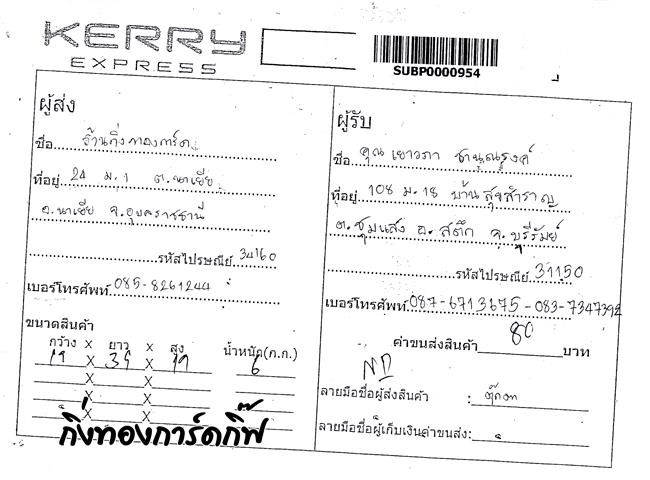 KERRY
EXPRESS
SUBP0000954
ผู้ส่ง
ชื่อ ร้านกิ่งทองการ์ด
ที่อยู่ 24 ม.1 ต.นาเยีย
อ.นาเยีย จ.อุบลราชธานี
รหัสไปรษณีย์ 34160
เบอร์โทรศัพท์ 085-8261244
ขนาดสินค้า
กว้าง x ยาว x สูง น้ำหนัก(ก.ก.)
19 x 39 x 19 6
x x
x x
x x
กิ่งทองการ์ดกิ๊ฟ
ผู้รับ
ชื่อ คุณ เยาวภา
ที่อยู่ 108 ม.18 บ้านสุขสำราญ
ต.ชุมแสง อ.สตึก จ.บุรีรัมย์
รหัสไปรษณีย์ 31150
เบอร์โทรศัพท์ 087-6713675-083-7347392
ค่าขนส่งสินค้า 80 บาท
ND
ลายมือชื่อผู้ส่งสินค้า :
ลายมือชื่อผู้เก็บเงินค่าขนส่ง: